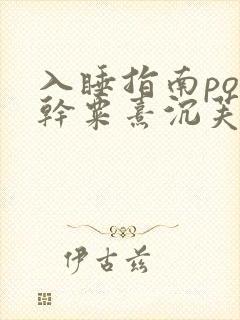 入睡指南po
幹粟熹沉芙
伊古兹